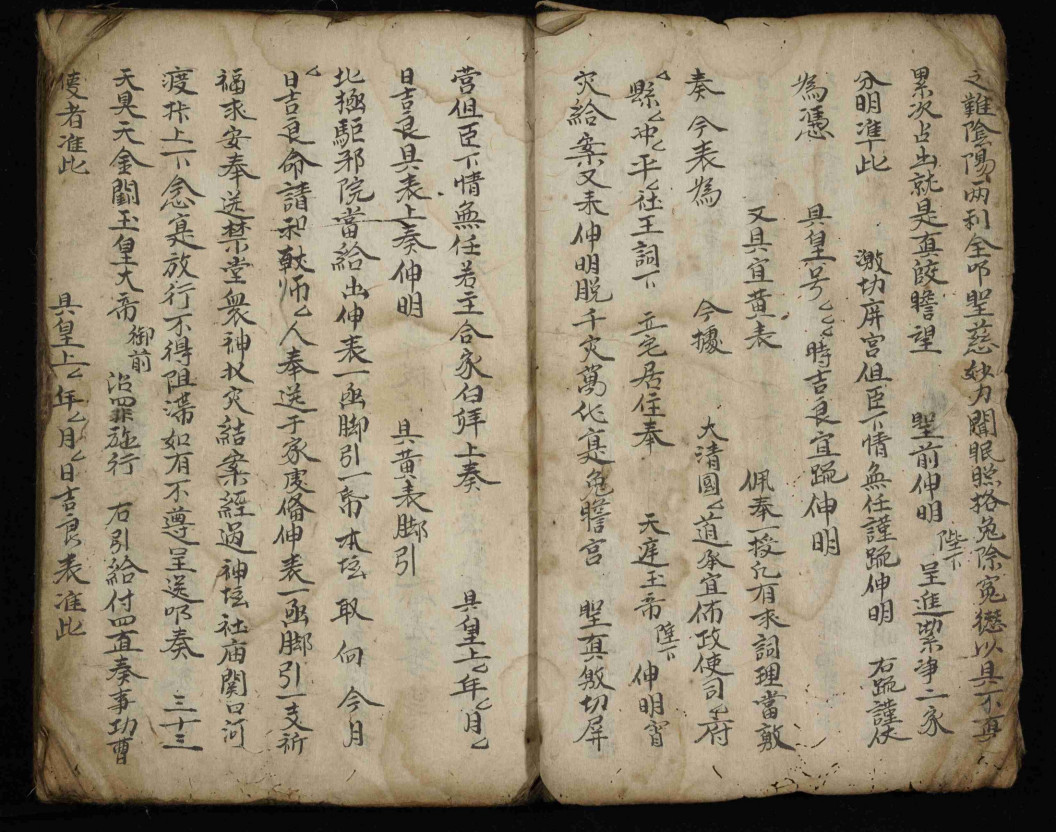 之難陰陽兩利全叩聖慈妙力聞眠照格免除冤愆以具不真
累次占出就是真皎瞻望 聖前伸明 陛下 呈進紫爭二家
分明準此 激切屏宮但臣下情無任謹疏伸明 右疏謹伏
為憑 具皇号〻〻時吉良宜疏伸明
又具宜黃表 佩奉一授凢有求詞理當敷
奏 今表為 今據 大清國〻道承宣佈政使司〻府
〻縣〻冲〻平〻社王詞下 立宅居住奉 天庭玉帝 陛下 伸明宵
灾給案又来伸明脱千灾萬化寔兔瞻宮 聖真激切屏
营但臣下情無任若主合家百拜上奏 具皇上〻年〻月〻
日吉良具表上奏伸明 具黃表脚引
北極驅邪院當給出伸表一函脚引一帋本坛取向 今月
〻日吉良命請和軟师〻人奉送于家虔俻伸表一函脚引一支祈
福求安奉送禁堂衆神收灾結案經過神坛社庙関口河
渡抔上下念寔放行不得阻滯如有不遵呈送叩奏 三十三
天具天金闕玉皇大帝 御前 治罪施行 右引給付四直奏事功曹
使者准此 具皇上〻年〻月〻日吉良表准此